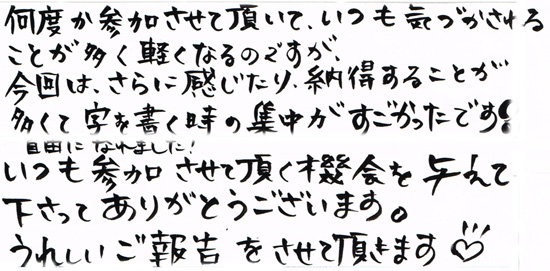 何度か参加させて頂いて、いつも気づかされる
ことが多く軽くなるのですが、
今回は、さらに感じたり、納得することが
多くて字を書く時の集中がすごかったです!
自由になれました!
いつも参加させて頂く機会を与えて
下さってありがとうございます。
うれしいご報告をさせて頂きます♡